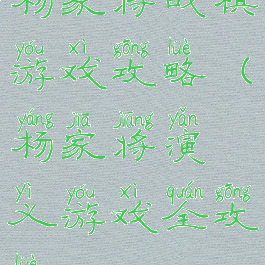 杨家将战棋
yóu xì gōng lüè
游戏攻略（
yáng jiā jiāng yǎn
杨家将演
yì yóu xì quán gōng
义游戏全攻
lüè